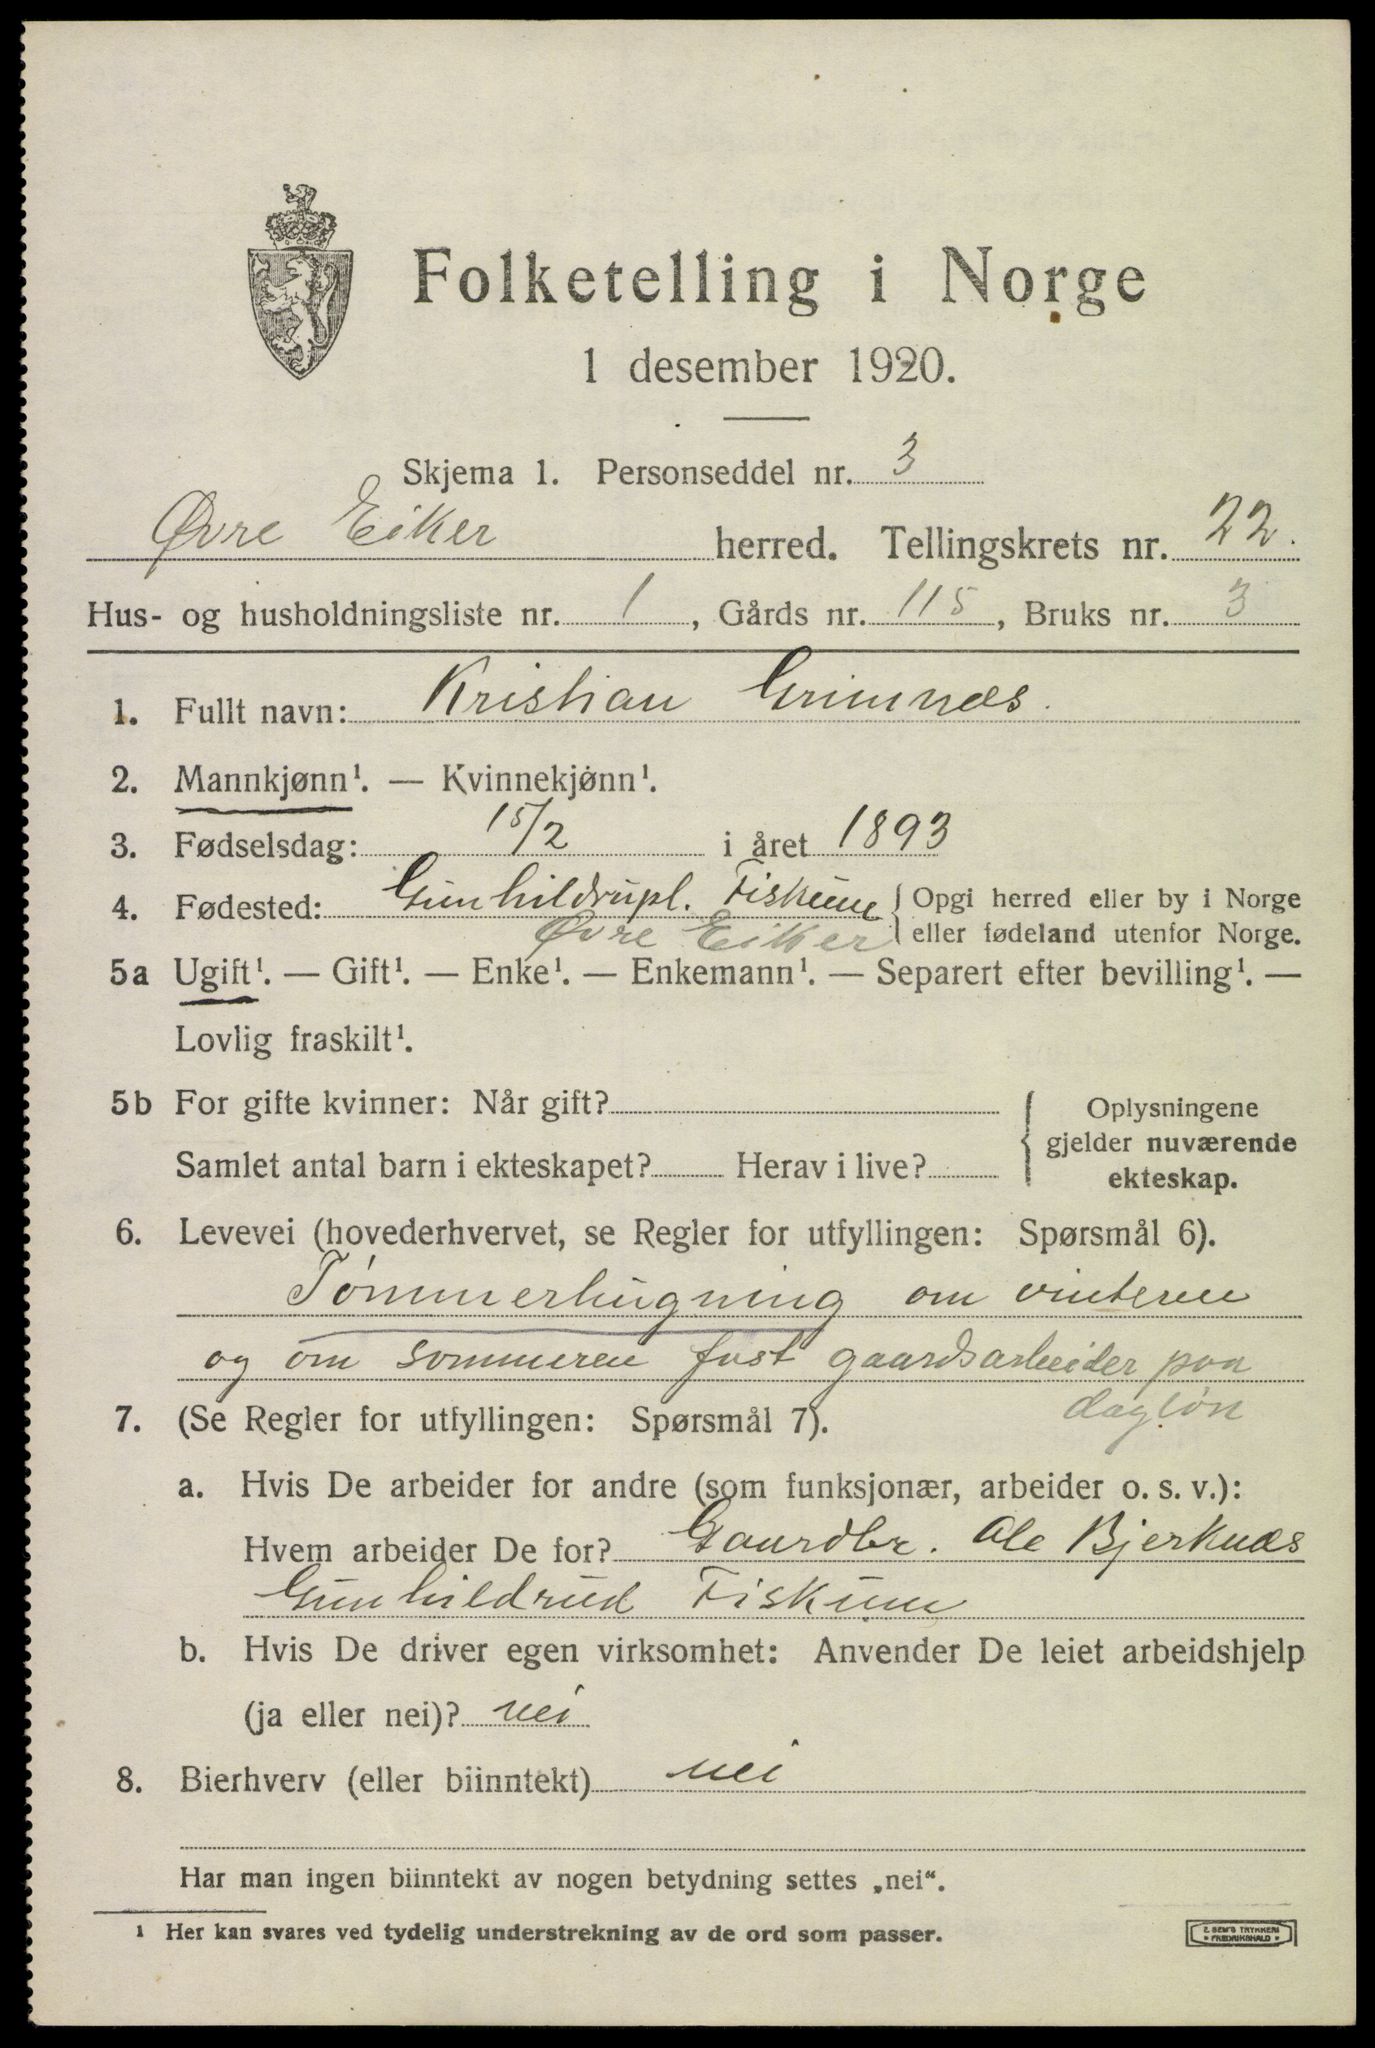 Folketelling i Norge
1 desember 1920.
Skjema 1. Personseddel nr. 3
Øvre Eiker herred. Tellingskrets nr. 22.
Hus- og husholdningsliste nr. 1, Gårds nr. 115, Bruks nr. 3
1. Fullt navn: Kristian Grimnæs.
2. Mannkjønn¹. — Kvinnekjønn¹.
3. Fødselsdag: 15/2 i året 1893
4. Fødested: Gunhildrupl. Fiskum { Opgi herred eller by i Norge
Øvre Eiker eller fødeland utenfor Norge.
5a Ugift¹. — Gift¹. — Enke¹. — Enkemann¹. — Separert efter bevilling¹. —
Lovlig fraskilt¹.
5b For gifte kvinner: Når gift? { Oplysningene
gjelder nuværende
Samlet antal barn i ekteskapet? Herav i live? ekteskap.
6. Levevei (hovederhvervet, se Regler for utfyllingen: Spørsmål 6).
Tømmerhugning om vinteren
og om sommeren fast gaardsarbeider paa
dagløn
7. (Se Regler for utfyllingen: Spørsmål 7).
a. Hvis De arbeider for andre (som funksjonær, arbeider o. s. v.):
Hvem arbeider De for? Gaardbr. Ole Bjerknæs
Gunhildrud Fiskum
b. Hvis De driver egen virksomhet: Anvender De leiet arbeidshjelp
(ja eller nei)? nei
8. Bierhverv (eller biinntekt) nei
Har man ingen biinntekt av nogen betydning settes „nei“.
¹ Her kan svares ved tydelig understrekning av de ord som passer.
E. SEM'S TRYKKERI
• FREDRIKSHALD •